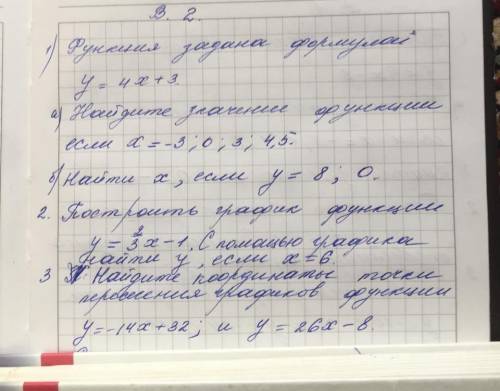 В. 2.
1) Функция задана формулой
y = 4x + 3.
а) Найдите значение функции
если x = -3; 0; 3; 4,5.
б) Найти x, если y = 8; 0.
2. Построить график функции
y = 2/3 x - 1. С помощью графика
найти y, если x = 6
3 Найдите координаты точки
пересения графиков функции
y = -14x + 32; и y = 26x - 8.